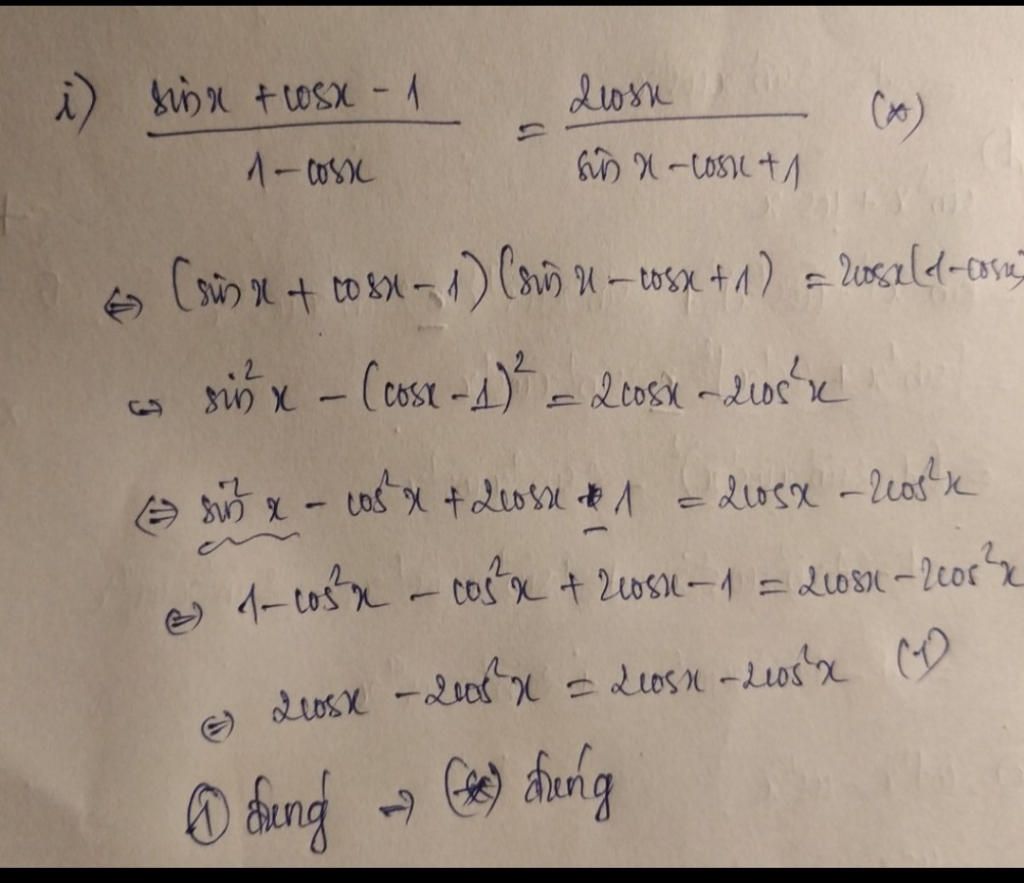 i) (sin x + cos x - 1)/(1 - cos x) = 2cos x/(sin x - cos x + 1) (*)
⇔ (sin x + cos x - 1)(sin x - cos x + 1) = 2cos x(1 - cos x)
⇔ sin²x - (cos x - 1)² = 2cos x - 2cos²x
⇔ sin²x - cos²x + 2cos x - 1 = 2cos x - 2cos²x
⇔ 1 - cos²x - cos²x + 2cos x - 1 = 2cos x - 2cos²x
⇔ 2cos x - 2cos²x = 2cos x - 2cos²x (1)
① đúng → (*) đúng